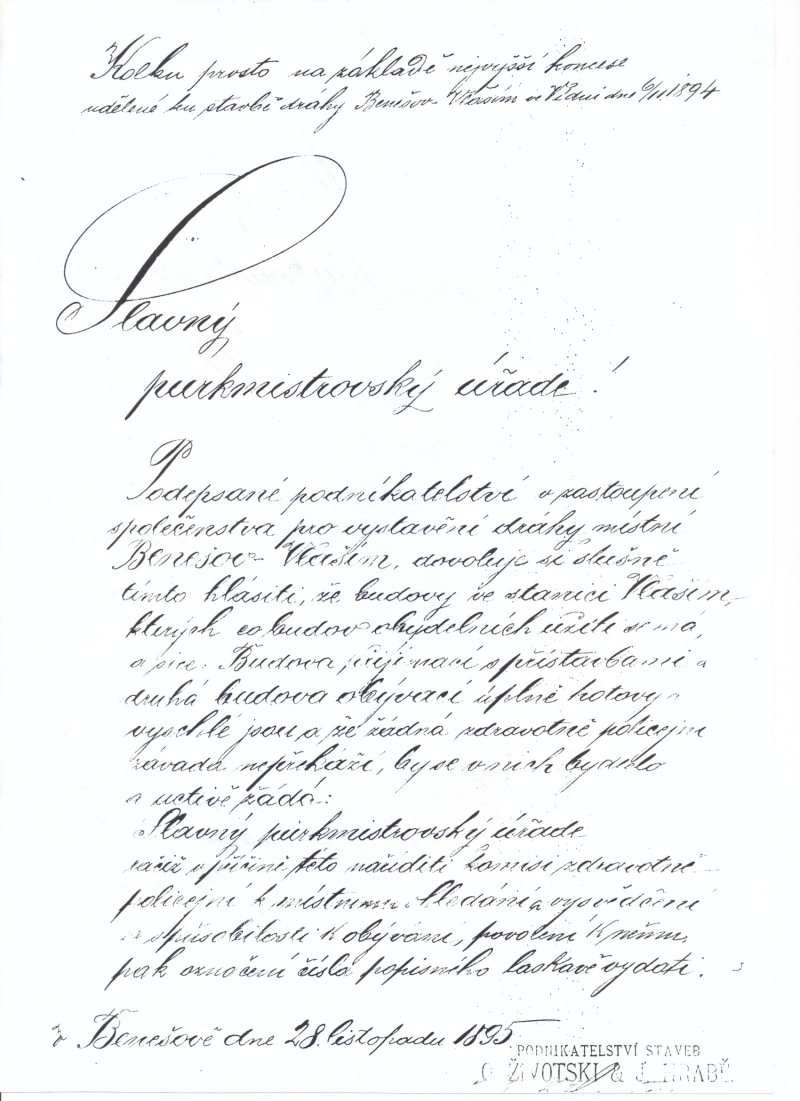 Kolku prosto na základě nejvyšší koncese
udělené ku stavbě dráhy Benešov-Vlašim ve Vídni dne 6/11. 1894
Slavný
purkmistrovský úřade!
Podepsané podnikatelství v zastoupení
společenstva pro vystavění dráhy místní
Benešov-Vlašim, dovoluje si slušně
tímto hlásiti, že budovy ve stanici Vlašim,
kterých co budov obydelních užíti se má,
a sice: Budova přijímací s přístavbami a
druhá budova obývací úplně hotovy a
vyschlé jsou a že žádná zdravotně policejní
závada nepřekáží, by se v nich bydlelo
a uctivě žádá:
Slavný purkmistrovský úřade
račiž v příčině této naříditi komisi zdravotně-
policejní k místnímu hledání a vysvědčení
o způsobilosti k obývání, povolení k němu,
pak označení čísla popisného laskavě vydati.
V Benešově dne 28. listopadu 1895
PODNIKATELSTVÍ STAVEB
O. ŽIVOTSKI & J. HRABĚ